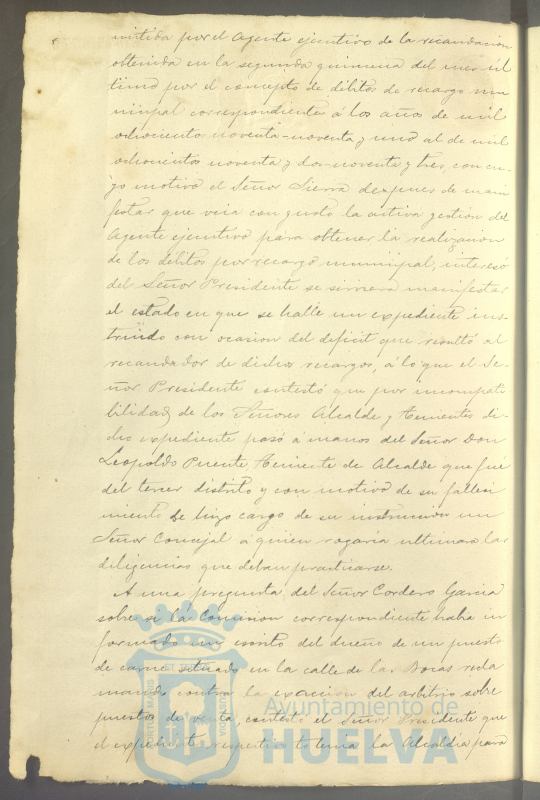 mitida por el Agente ejecutivo de la recaudacion
obtenida en la segunda quincena del mes úl
timo por el concepto de débitos de recargo mu
nicipal correspondientes á los años de mil
ochocientos noventa-noventa y uno al de mil
ochocientos noventa y dos-noventa y tres, con cu-
yo motivo el Señor Sierra despues de mani
festar que veia con gusto la activa gestion del
Agente ejecutivo para obtener la realizacion
de los débitos por recargo municipal, interesó
del Señor Presidente se sirviera manifestar
el estado en que se halle un expediente ins-
truido con ocasion del deficit que resultó al
recaudador de dichos recargos, á lo que el Se-
ñor Presidente contestó que por incompati
bilidad de los Señores Alcalde y Tenientes di-
cho expediente pasó á manos del Señor Don
Leopoldo Puente, Teniente de Alcalde que fué
del tercer distrito y con motivo de su falleci
miento se hizo cargo de su instruccion un
Señor Concejal á quien rogaria ultimara las
diligencias que deban practicarse.
A una pregunta del Señor Cordero Garcia
sobre si la Comision correspondiente habia in
formado un escrito del dueño de un puesto
de carne situado en la calle de las Bocas recla
mando contra la exaccion del arbitrio sobre
puestos de venta, contestó el Señor Presidente que
el expediente respectivo lo tenia la Alcaldia para
Ayuntamiento de
HUELVA